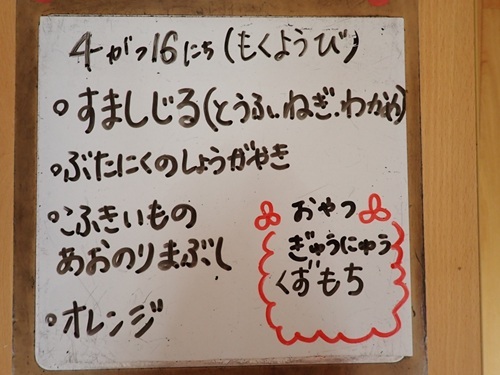 4がつ16にち(もくようび)
すましじる(とうふ.ねぎ.わかめ)
ぶたにくのしょうがやき
こふきいもの
あおのりまぶし
オレンジ
おやつ
ぎゅうにゅう
くずもち